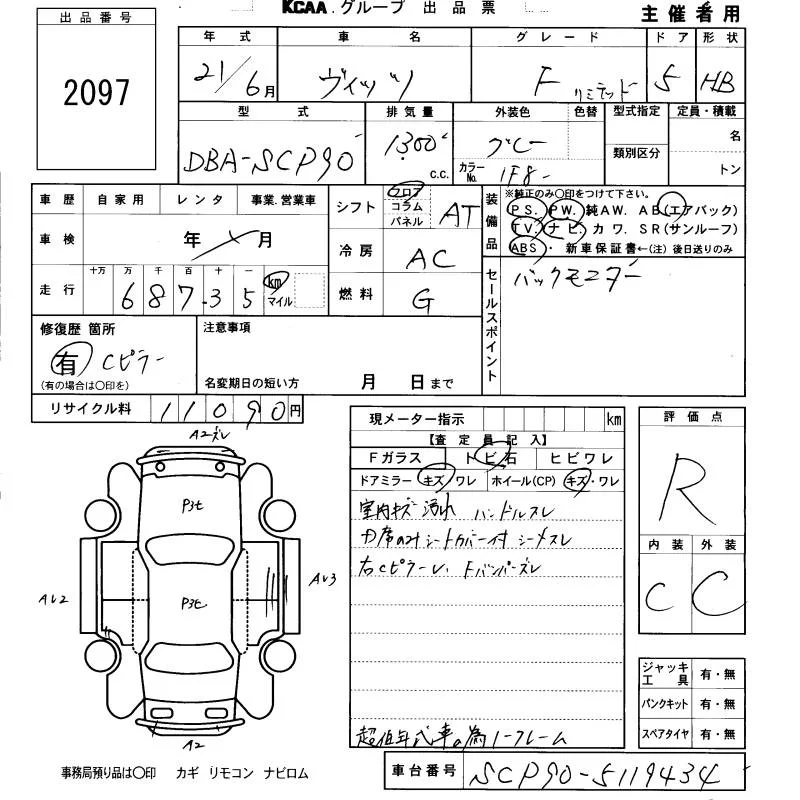 KCAA.グループ 出品票
主催者用
出品番号
2097
年式 車名 グレード ドア 形状
21/6月 ヴィッツ F リミテッド 5 HB
型式 排気量 外装色 色替 型式指定 定員・積載
DBA-SCP90 1300 c.c. グレー カラーNo. 1F8- 類別区分 名 トン
車歴 自家用 レンタ 事業.営業車
シフト フロア コラム パネル AT
装備品 ※純正のみ〇印をつけて下さい。
PS. PW. 純AW. AB(エアバック)
TV. ナビ. カワ. SR(サンルーフ)
ABS・ 新車保証書←(注)後日送りのみ
車検 年 月
冷房 AC
走行 十万 万 千 百 十 一
68735 km マイル
燃料 G
セールスポイント バックモニター
修復歴 箇所
有 Cピラー
(有の場合は〇印を)
注意事項
名変期日の短い方 月 日まで
リサイクル料 11090円
現メーター指示 km
【査定員記入】
Fガラス トビ石 ヒビワレ
ドアミラー キズ/ワレ ホイール(CP) キズ・ワレ
室内キズ 汚れ ハンドルスレ
シートカバー付
右Cピラー
超低年式車の為ノークレーム
評価点
R
内装 外装
C C
A2
P3t
AU2
AU3
P3t
A2
ジャッキ工具 有・無
パンクキット 有・無
スペアタイヤ 有・無
事務局預り品は〇印 カギ リモコン ナビロム
車台番号 SCP90-5119434